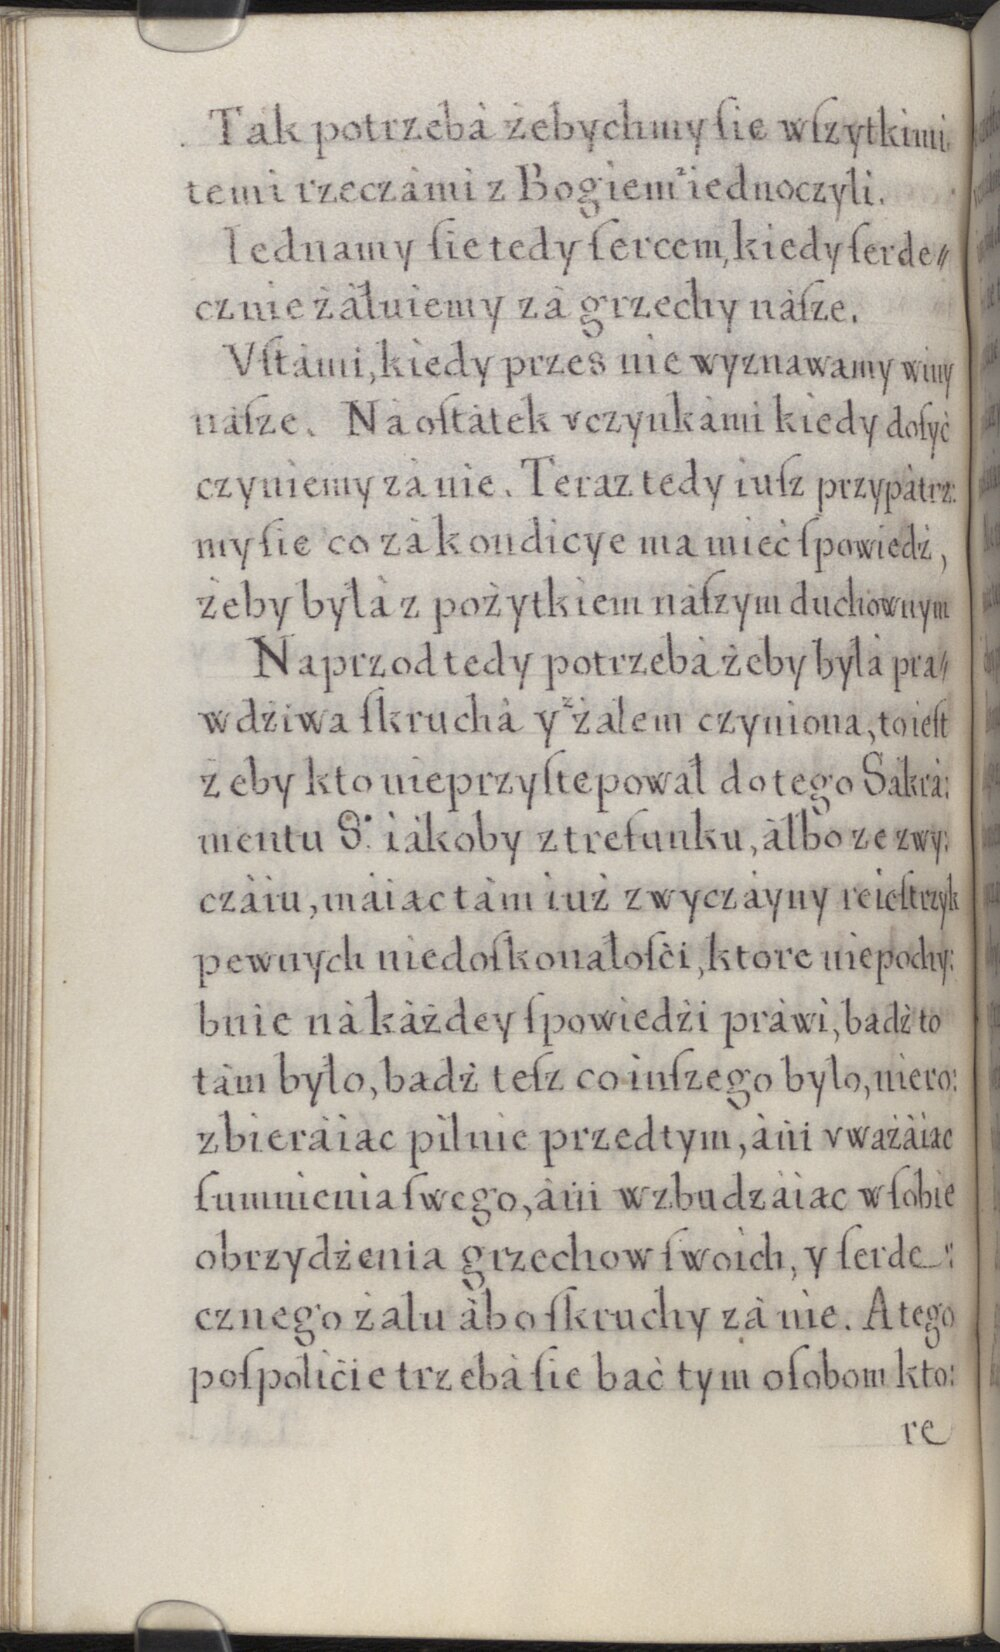 Ták potrzebà żebychmy ſie wſzytkimi
temi rzeczámi z Bogiem iednoczyli.
Iednamy ſie tedy ſercem, kiedy ſerde//
cznie żàłuiemy zà grzechy nàſze.
Vſtámi, kiedy przes nie wyznawamy winy
náſze. Ná oſtátek vczynkámi kiedy doſyć
czyniemy zá nie. Teraz tedy iuſz przypàtrz:
my ſie co zá kondicye ma mieć ſpowiedź,
żeby byłà z pożytkiem náſzym duchownym
Naprzod tedy potrzebà żeby byłà pra//
wdźiwa ſkruchà y z żalem czyniona, to ieſt
żeby kto nieprzyſtepował do tego Sákrá:
mentu S. iákoby z trefunku, àlbo ze zwy:
czáiu, máiac tàm iuż zwyczáyny reieſtrzyk
pewnych niedoſkonałoſći, ktore niepochy:
bnie nà kàżdey ſpowiedźi práwi, badź to
tàm było, badź teſz co inſzego było, niero:
zbieráiac pilnie przedtym, àni vważáiac
ſumnienia ſwego, áni wzbudzáiac w ſobie
obrzydżenia grzechow ſwoich, y ſerde:
cznego żalu àbo ſkruchy zà nie. A tego
poſpolićie trzebà ſie bać tym oſobom kto:
re